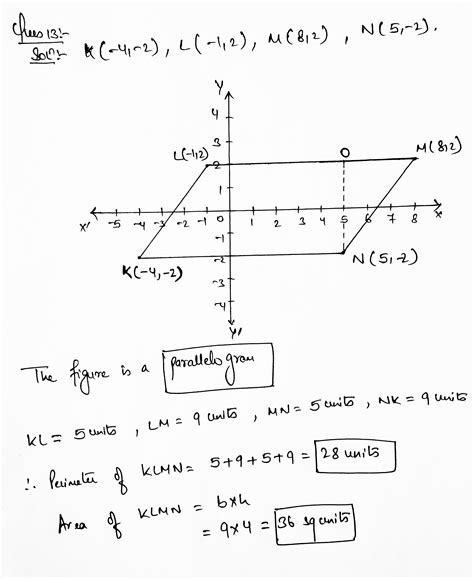 Ques 13:-
Sol:- K(-4,-2), L(-1,2), M(8,2), N(5,-2).
Y
4
3
L(-1,2) 2 O M(8,2)
1
X' -5 -4 -3 -2 -1 0 1 2 3 4 5 6 7 8 X
-1
K(-4,-2) -2 N(5,-2)
-3
-4
Y'
The figure is a parallelogram
KL = 5 units, LM = 9 units, MN = 5 units, NK = 9 units
∴ Perimeter of KLMN = 5+9+5+9 = 28 units
Area of KLMN = b×h
= 9×4 = 36 sq units